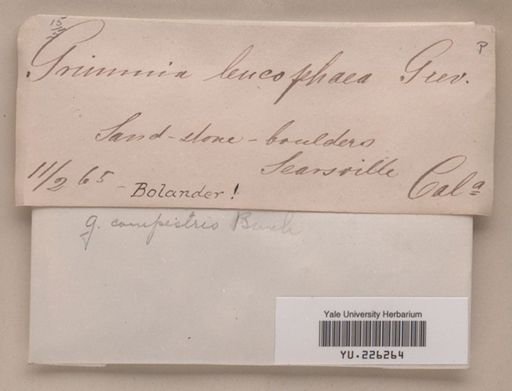 Grimmia leucophaea Grev.
Sand-stone-boulders
Searsville
11/2 65 - Bolander! Calª
g. campestris Burch
Yale University Herbarium
YU.226264